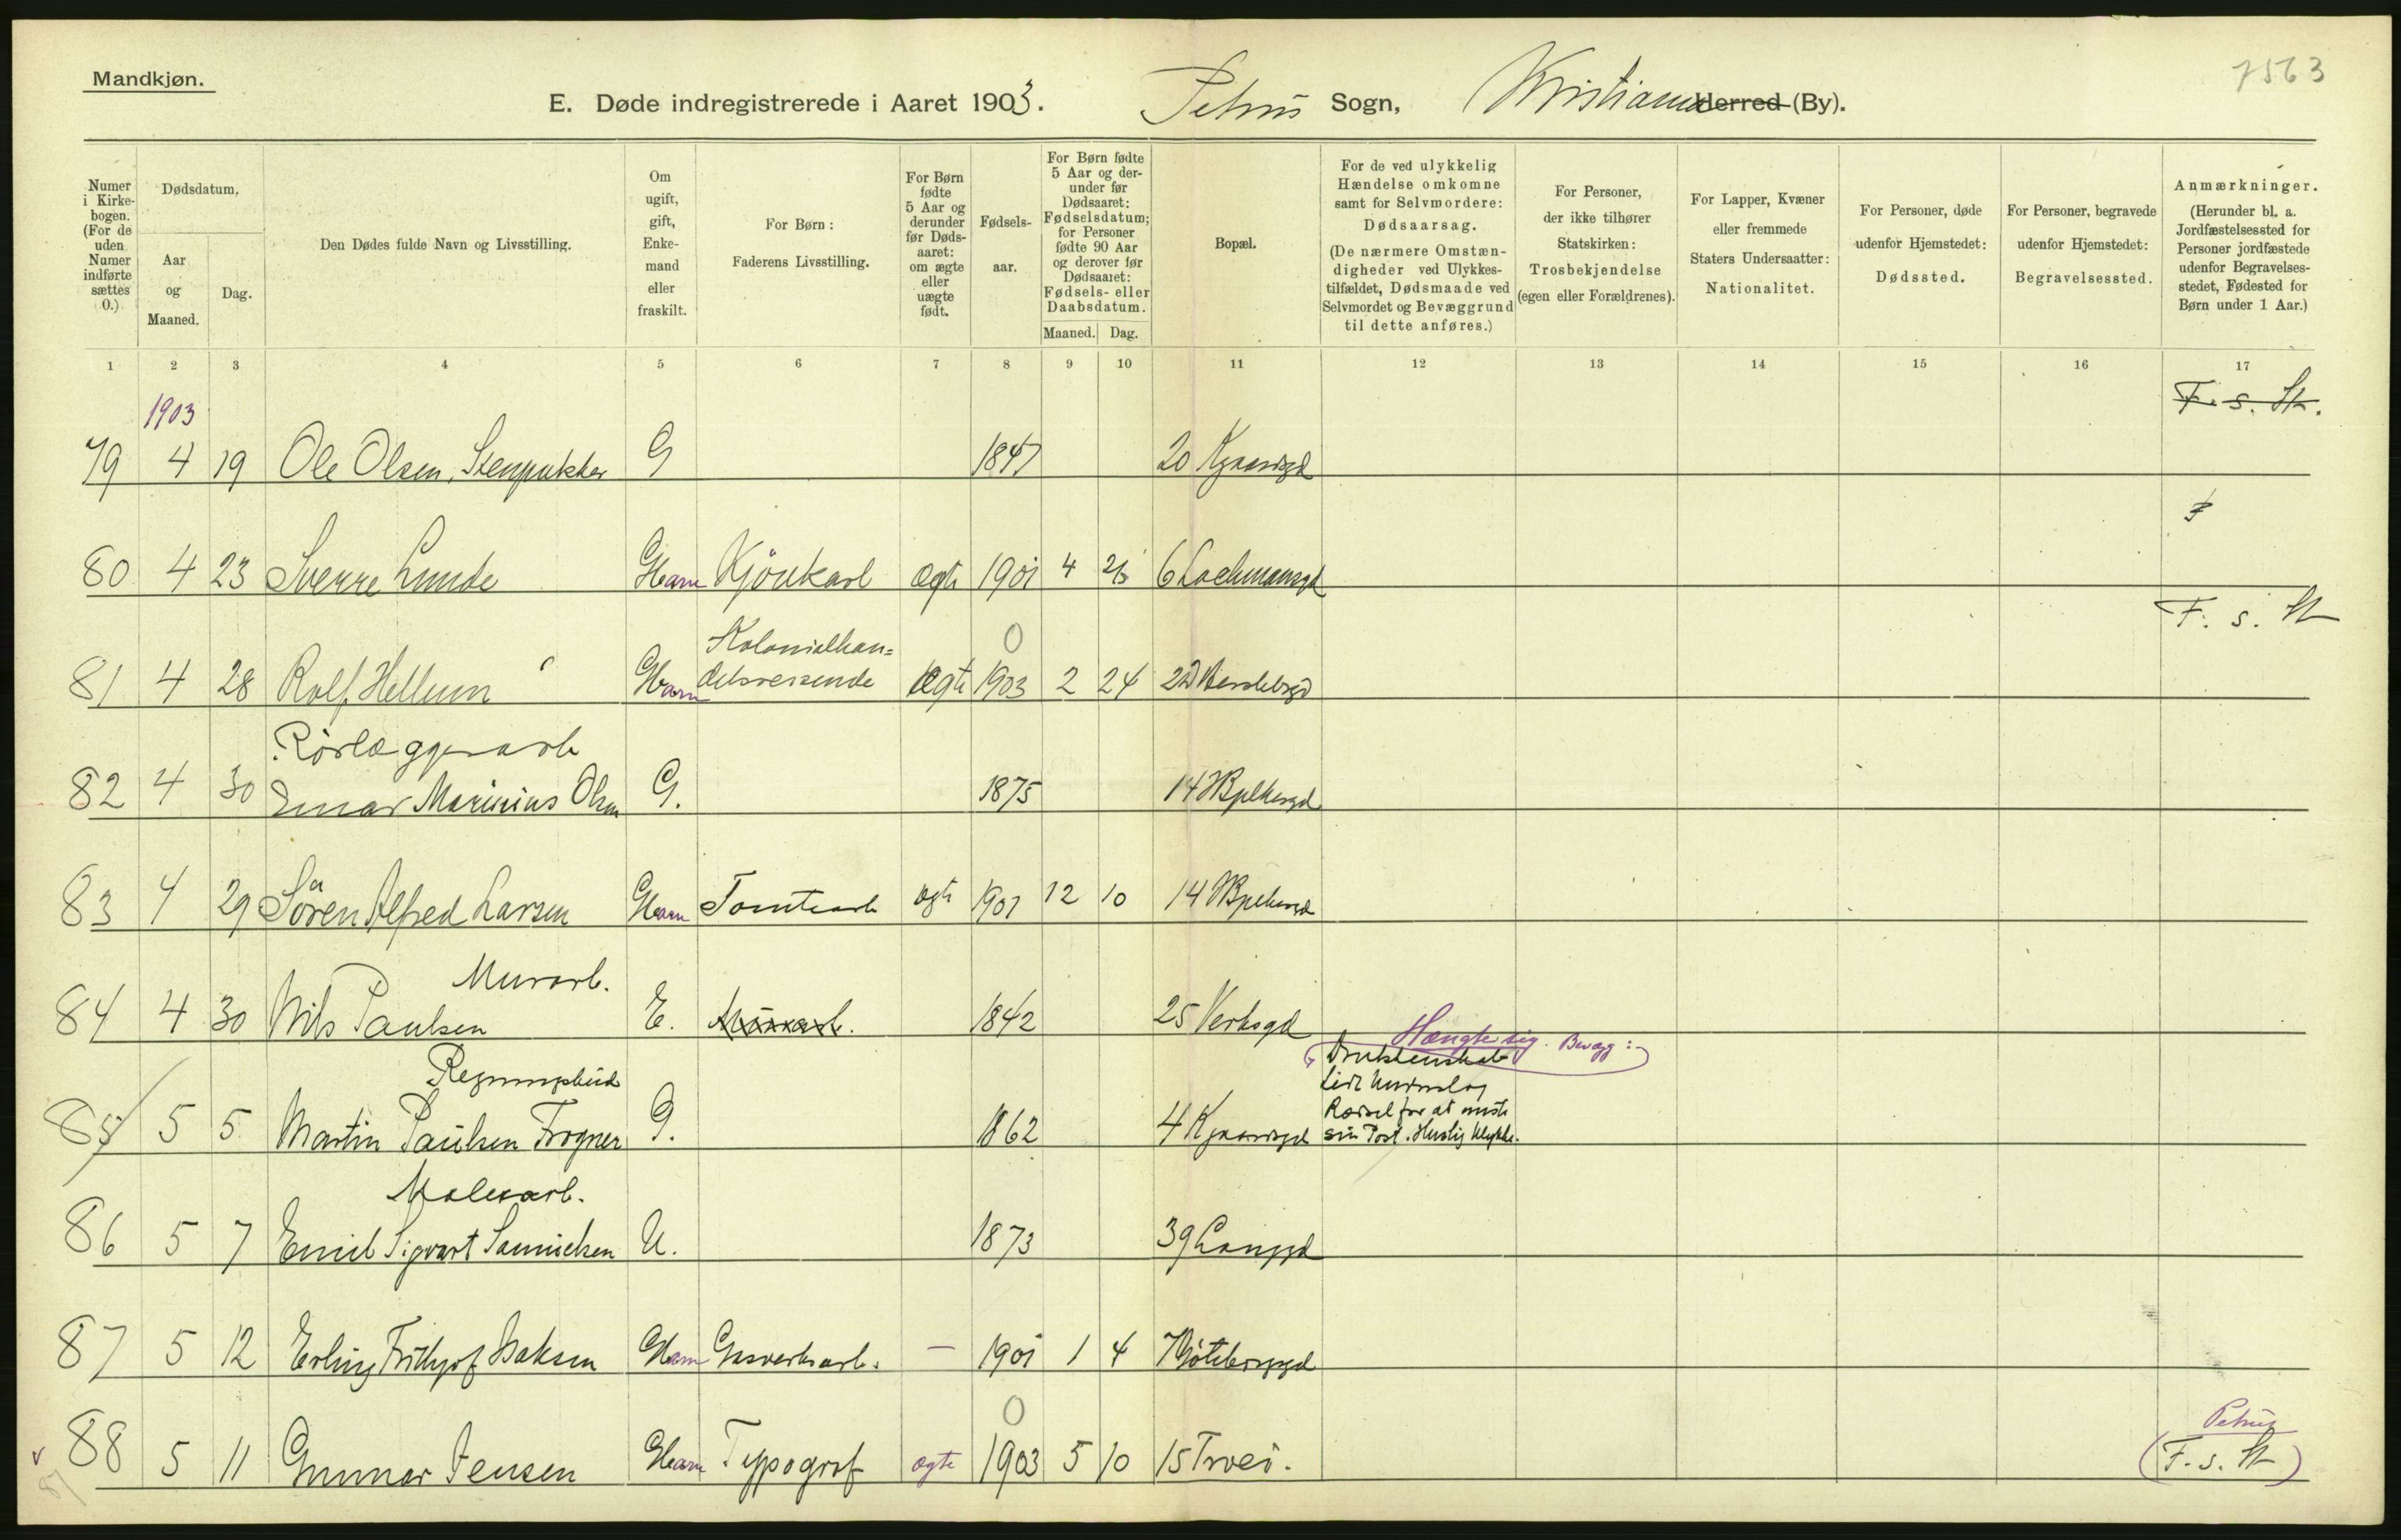 Mandkjøn.
7563
E. Døde indregistrerede i Aaret 1903. Petrus Sogn, Kristiania Herred (By).
Numer i Kirke-bogen. (For de uden Numer indførte sættes 0.)
Dødsdatum.
Aar og Maaned.
Dag.
Den Dødes fulde Navn og Livsstilling.
Om ugift, gift, Enke-mand eller fraskilt.
For Børn: Faderens Livsstilling.
For Børn fødte 5 Aar og derunder før Døds-aaret: om ægte eller uægte født.
Fødsels-aar.
For Børn fødte 5 Aar og der-under før Dødsaaret: Fødselsdatum; for Personer fødte 90 Aar og derover før Dødsaaret: Fødsels- eller Daabsdatum.
Maaned. Dag.
Bopæl.
For de ved ulykkelig Hændelse omkomne samt for Selvmordere: Dødsaarsag. (De nærmere Omstæn-digheder ved Ulykkes-tilfældet, Dødsmaade ved Selvmordet og Bevæggrund til dette anføres.)
For Personer, der ikke tilhører Statskirken: Trosbekjendelse (egen eller Forældrenes).
For Lapper, Kvæner eller fremmede Staters Undersaatter: Nationalitet.
For Personer, døde udenfor Hjemstedet: Dødssted.
For Personer, begravede udenfor Hjemstedet: Begravelsessted.
Anmærkninger. (Herunder bl. a. Jordfæstelsessted for Personer jordfæstede udenfor Begravelses-stedet, Fødested for Børn under 1 Aar.)
1 2 3 4 5 6 7 8 9 10 11 12 13 14 15 16 17
1903
F. s. St.
79 4 19 Ole Olsen, Stenpukker G 1847 20
80 4 23 Sverre Lunde Barn Kjörekarl ægte 1901 4 6
F. s. St
Kolonialhan=
0
81 4 28 Rolf Hellum Barn delsreisende ægte 1903 2 24 22
Rörlæggerarb
82 4 30 Einar Marinius Olsen G. 1875 14
83 4 29 Sören Alfred Larsen Barn Tomtearb ægte 1901 12 10 14
Murarb.
84 4 30 Nils Paulsen E. 1842 25 Verksgd
Hængte sig. Bevægg:
Drukkenskab
Regningsbud
Rædsel for at miste
85 5 5 Martin Paulsen Frogner G. 1862 4 sin Post. Huslig Ulykke.
Malerarb.
86 5 7 Emil Sigvart Samuelsen U. 1873 39 Langgd
87 5 12 Erling Frithjof Isaksen Barn Gasverksarb. — 1901 1 4 7 Göteborggd
0
Petrus
88 5 11 Gunnar Jensen Barn Typograf ægte 1903 5 10 15 (F. s. St)
87